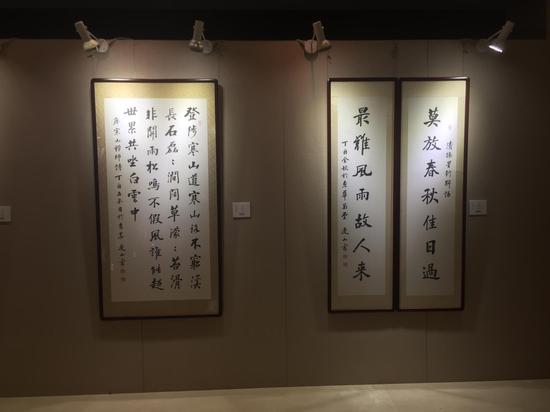 莫放春秋佳日過
清孫星衍聯語
最難風雨故人来
丁酉金秋於
登陟寒山道寒山路不窮溪
長石磊〻澗闊草濛〻苔滑
非關雨松鳴不假風誰能超
世累共坐白雲中
唐寒山禪師詩丁酉